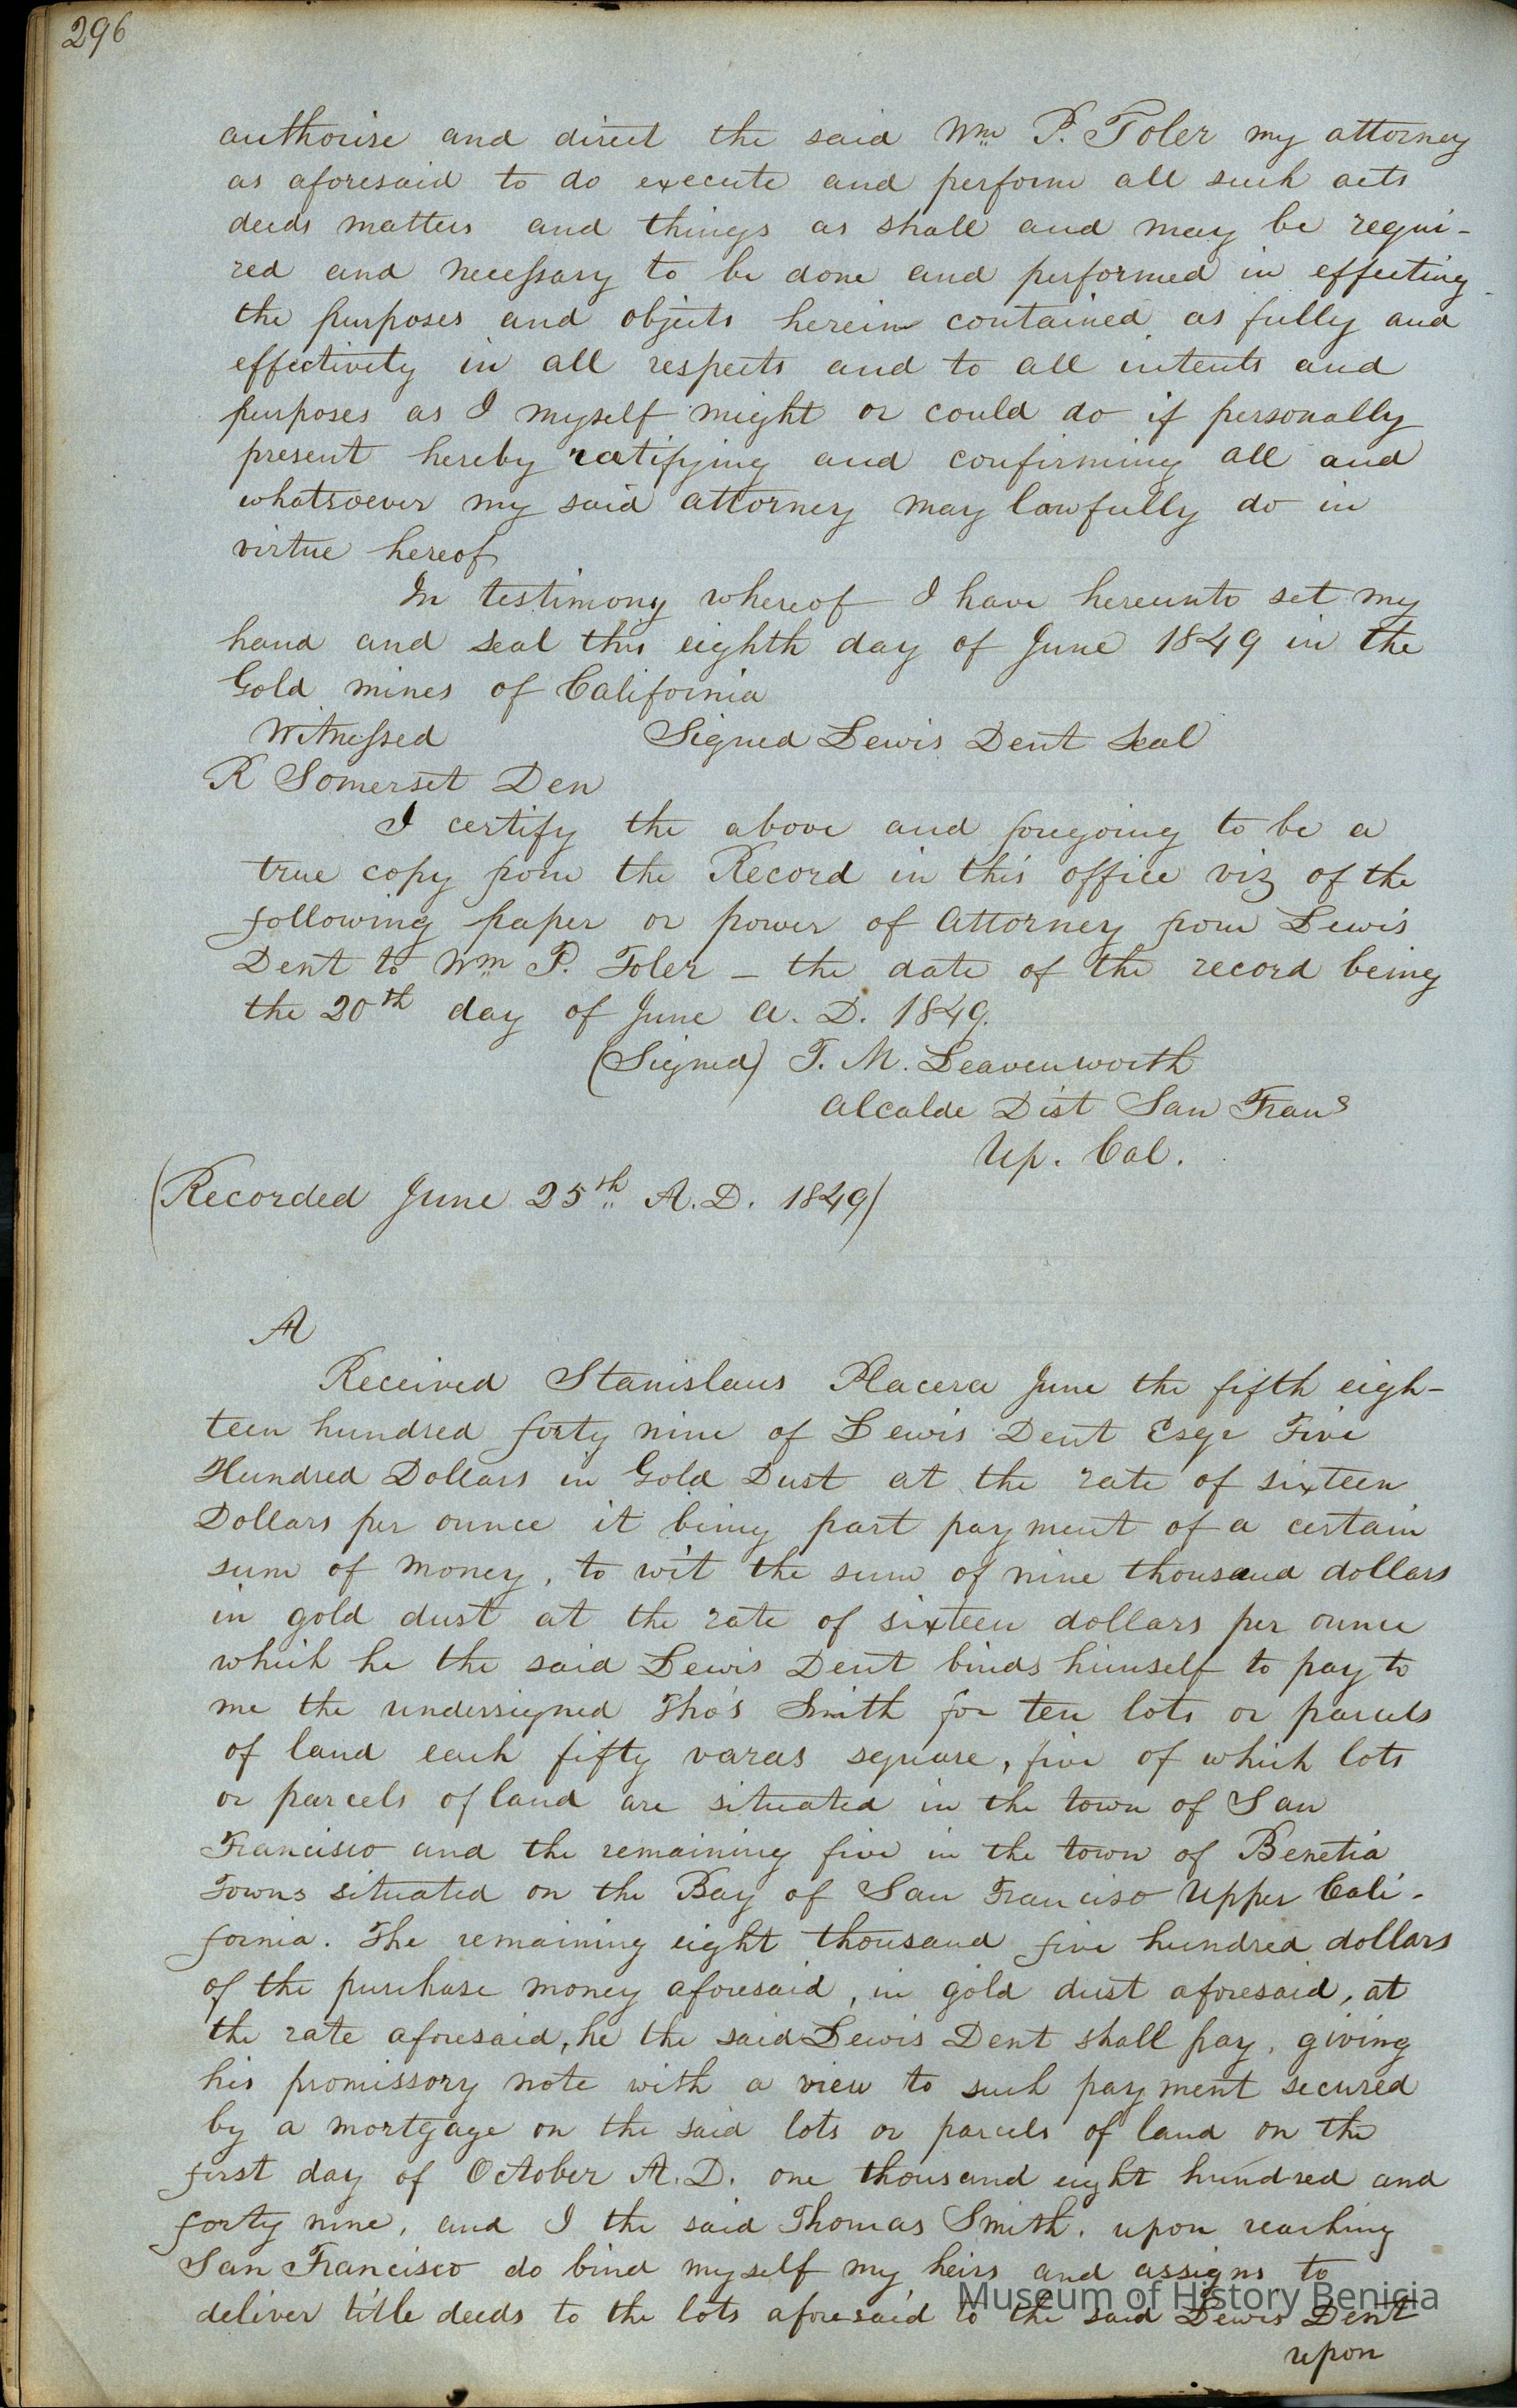 296
authorise and direct the said Wm P. Toler my attorney
as aforesaid to do execute and perform all such acts
deeds matters and things as shall and may be requi-
red and necessary to be done and performed in effecting
the purposes and objects herein contained as fully and
effectivity in all respects and to all intents and
purposes as I myself might or could do if personally
present hereby ratifying and confirming all and
whatsoever my said attorney may lawfully do in
virtue hereof
In testimony whereof I have hereunto set my
hand and seal this eighth day of June 1849 in the
Gold mines of California
Witnessed Signed Lewis Dent Seal
R Somerset Den
I certify the above and foregoing to be a
true copy from the Record in this office viz of the
following paper or power of attorney from Lewis
Dent to Wm P. Toler - the date of the record being
the 20th day of June A. D. 1849.
(Signed) T. M. Leavenworth
Alcalde Dist San Frans
Up. Cal.
(Recorded June 25th A.D. 1849)
A
Received Stanislaus Placera June the fifth eigh-
teen hundred forty nine of Lewis Dent Esqr Five
Hundred Dollars in Gold Dust at the rate of sixteen
Dollars per ounce it being part payment of a certain
sum of money, to wit the sum of nine thousand dollars
in gold dust at the rate of sixteen dollars per ounce
which he the said Lewis Dent binds himself to pay to
me the undersigned Tho's Smith for ten lots or parcels
of land each fifty varas square, five of which lots
or parcels of land are situated in the town of San
Francisco and the remaining five in the town of Benetia
Towns situated on the Bay of San Franciso Upper Cali-
fornia. The remaining eight thousand five hundred dollars
of the purchase money aforesaid, in gold dust aforesaid, at
the rate aforesaid, he the said Lewis Dent shall pay, giving
his promissory note with a view to such payment secured
by a mortgage on the said lots or parcels of land on the
first day of October A.D. one thousand eight hundred and
forty nine, and I the said Thomas Smith, upon reaching
San Francisco do bind myself my heirs and assigns to
deliver title deeds to the lots aforesaid to the said Lewis Dent
upon
Museum of History Benicia